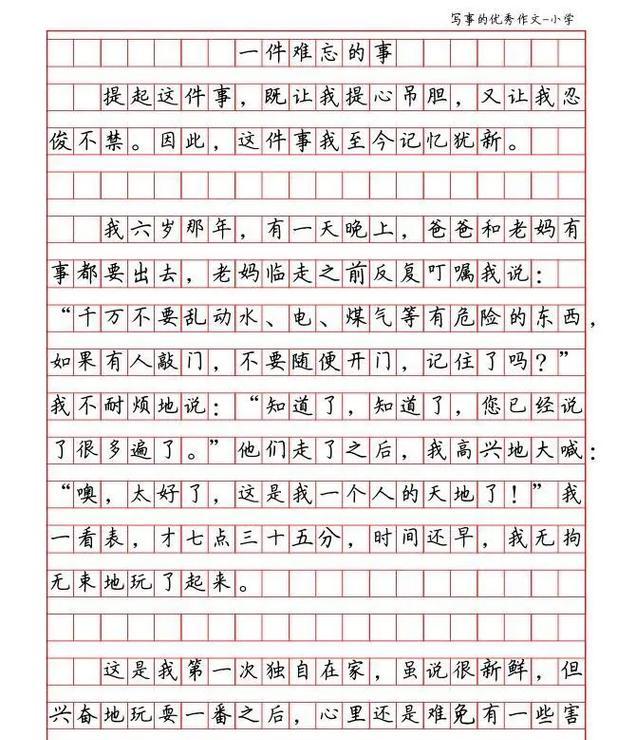 写事的优秀作文-小学
一件难忘的事
提起这件事，既让我提心吊胆，又让我忍
俊不禁。因此，这件事我至今记忆犹新。
我六岁那年，有一天晚上，爸爸和老妈有
事都要出去，老妈临走之前反复叮嘱我说：
“千万不要乱动水、电、煤气等有危险的东西，
如果有人敲门，不要随便开门，记住了吗？”
我不耐烦地说：“知道了，知道了，您已经说
了很多遍了。”他们走了之后，我高兴地大喊：
“噢，太好了，这是我一个人的天地了！”我
一看表，才七点三十五分，时间还早，我无拘
无束地玩了起来。
这是我第一次独自在家，虽说很新鲜，但
兴奋地玩耍一番之后，心里还是难免有一些害